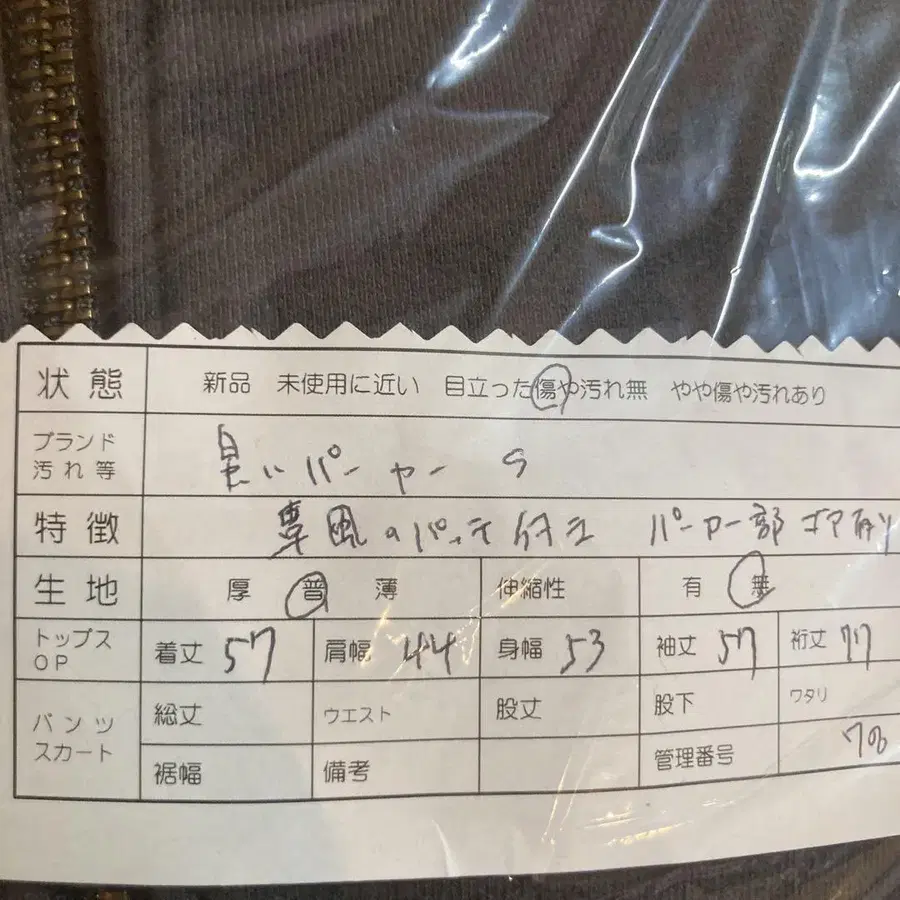 状態 新品 未使用に近い 目立った傷や汚れ無 やや傷や汚れあり
ブランド
汚れ等 パーカー S
特徴 パーカー部
生地 厚 普 薄 伸縮性 有 無
トップス
OP 着丈 57 肩幅 44 身幅 53 袖丈 57 裄丈 77
パンツ
スカート 総丈 ウエスト 股丈 股下 ワタリ
裾幅 備考 管理番号